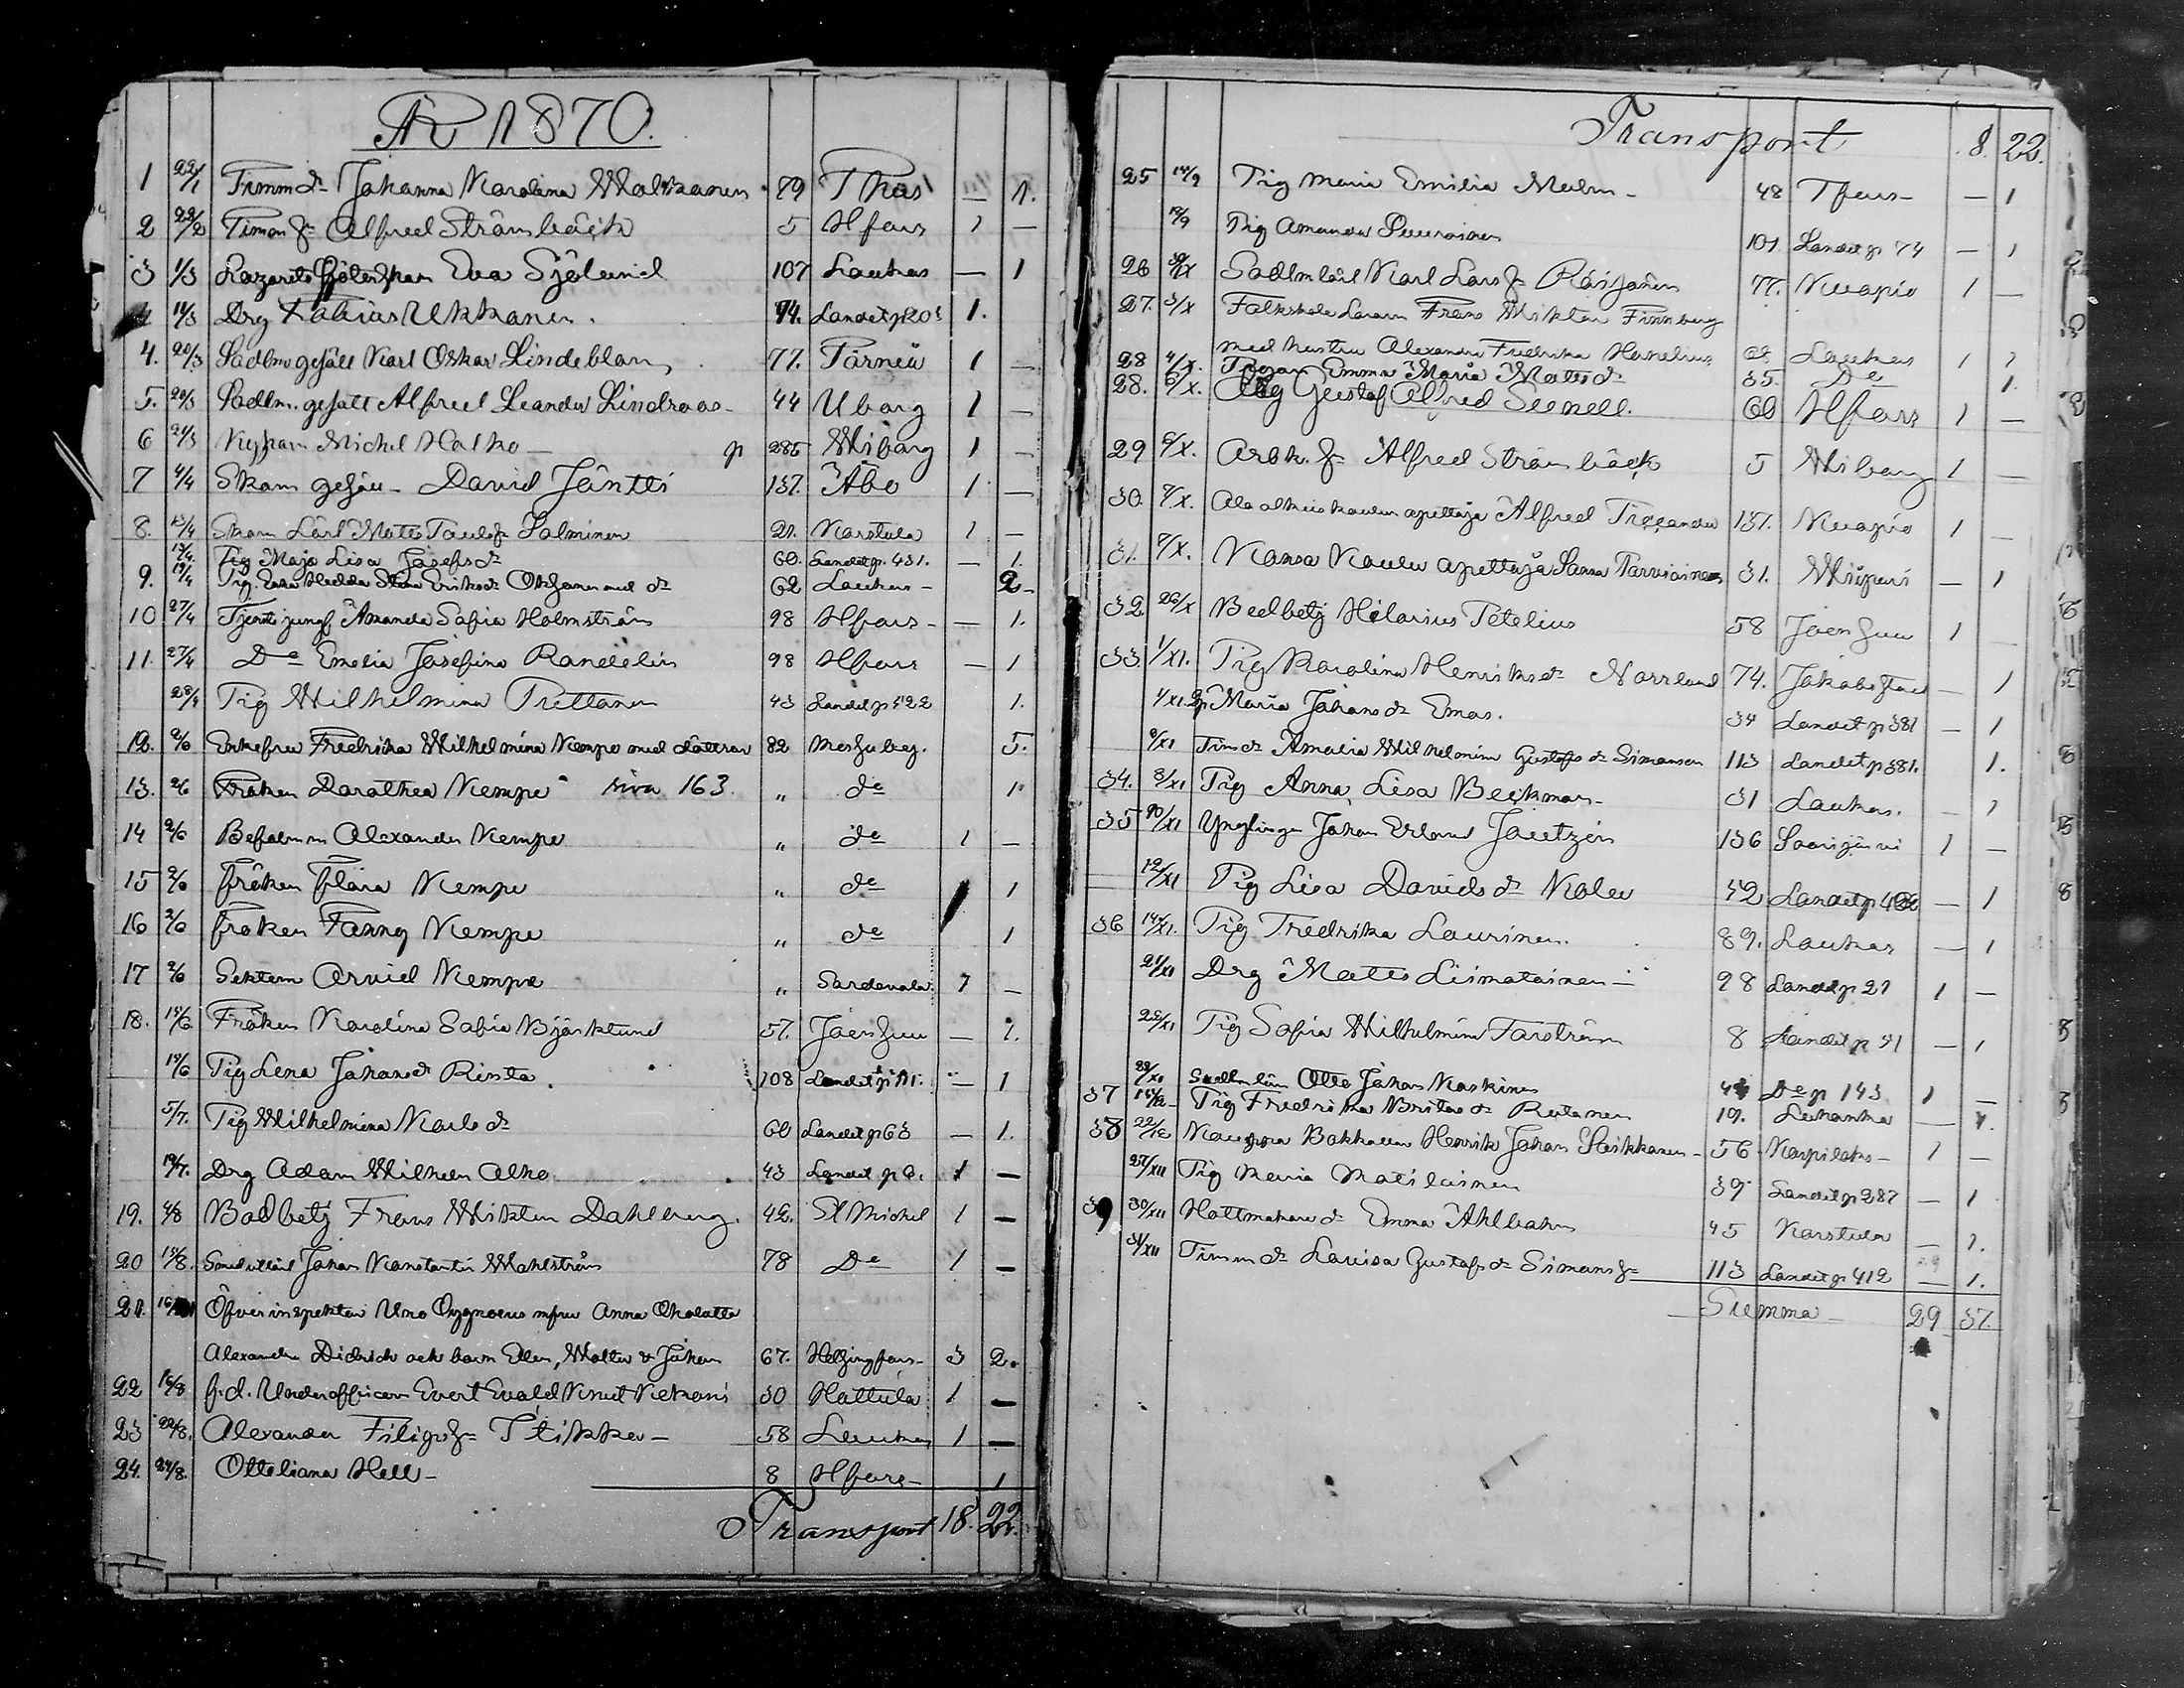 År 1870.
1 22/1 Timm dr Johanna Karolina Malkanen 79 Thus — 1.
2 22/2 Timm Sn Alfred Strömbäck 5 Hfors 1 —
3 1/3 Lazarets Sköterskan Eva Sjölund 107 Laukas — 1
11/3 Drg Tobias Ukkonen. 74. Landet p 203 1.
4. 20/3 Sadlm gesäll Karl Oskar Lindeblom 77. Pärneå 1 —
5. 20/3 Sadlm. gesäll Alfred Leander Lindroos 44 Uborg 1 —
6 21/3 Kyparn Michel Halko — p 285 Wiborg 1 —
7 4/4 Skom gesäll David Jäntti 137. Åbo 1 —
8. 13/4 Skom Lärl Matts Paulsson Salminen 21. Karstula 1 —
Pig Maja Lisa Josefs dr 60. Landet p. 431. — 1.
9. 19/4 Pig. Hedda Eriks dr Oksanen med dr 62 Laukas — 2 —
10 27/4 Tjenstejungf Amanda Sofia Holmström 98 Hfors — — 1.
11. 27/4 Do Emelia Josefina Randelin 98 Hfors — 1
28/4 Pig Wilhelmina Prittanen 43 Landet p 522 1.
12. 2/6 Enkefru Fredrika Wilhelmina Kempe med döttrar 82 5.
13. 2/6 Fröken Darathea Kempe 163. „ do 1
14 2/6 Alexander Kempe „ do 1 —
15 2/6 fröken Flora Kempe „ do 1
16 2/6 fröken Fanny Kempe „ do 1
17 2/6 Arvid Kempe „ Sordavala 1 —
18. 15/6 Fröken Karolina Sofia Björklund 57. Joensuu — 1.
15/6 Pig Lena Johans dr Rinta. 108 Landet p 111. — 1
5/7. Pig Wilhelmina Karls dr 60 Landet p 63 — 1.
19/7. Drg Adam Wilhelm Alho 43 Landet p 6. 1 —
19. 4/8 Bodbetj Frans Wiktor Dahlberg. 42. St Michel 1 —
20 15/8. Johan Konstantin Wahlström 78 Do 1 —
21. Öfverinspektor Uno Cygnaeus mfru Anna Charlotta
Alexandra Diedrich och barn Ellen, Walter & Johan 67. Helsingfors — 3 2.
22 16/8 f. d. Underofficern Evert Evald Knut Kekoni 30 Hattula 1 —
23 22/8. Alexander Filips Sn Tikka — 58 Laukas 1 —
24. 24/8. Otteliana Hell — 8 Hfors — 1
Transport 18. 22.
Transport 8. 22.
25 14/9 Pig Maria Emilia Malm — 48 Tfors — — 1
19/9 Pig Amanda Suuroinen 101. Landet p 74 — 1
26 30/IX Sadlm lärl Karl Lars Sn Räisänen 77. Kuopio 1 —
27. 3/X Folkskole Läraren Frans Wiktor Finnberg
med hustru Alexandra Fredrika Hanelius Laukas 1 1
28 4/X. Pigan Emma Maria Matts dr 35. Do 1.
28. 6/X. Gustaf Alfred Sinnell. 60 Hfors 1 —
29 6/X. Arbk. Sn Alfred Strömbäck 5 Wiborg 1 —
30. 7/X. Ala alkeis koulun opettaja Alfred 137. Kuopio 1 —
31. 7/X. Kansa Koulu opettaja Sanna Parviainen 31. Wiipuri — 1
32 26/X Bedbetj Hilarius Petelius 58 Joensuu 1 —
33. 1/XI. Pig Karolina Henriks dr Norrlund 74. Jakobstad — 1
1/XI. Pig Maria Johans dr Emas. 34 Landet p 381 — 1
8/XI Timm dr Amalia Wilhelmina Gustafs dr Simonson 113 Landet p 381. 1.
34. 8/XI Pig Anna Lisa Beckman — 31 Laukas. — 1
35 10/XI Ynglingen Johan Erland Jäntzén 136 Saarijärvi 1 —
12/XI Pig Lisa Davids dr Kolu 52. Landet p — 1
36 14/XI. Pig Fredrika Laurinen. 89. Laukas — 1
21/XI Drg Matts Liimatainen — 98 Landet p 21 1 —
25/XI Pig Sofia Wilhelmina Forström 8 Landet p 51 — 1
28/XI Sadlm lärn Otto Johan Koskinen Do p 143 1 —
37 Pig Fredrika Britas dr Rutanen 19. Leikanka — 1.
38 22/12 Kauppa Bokhallare Henrik Johan Saikkanen — 56 Korpilaks — 1 —
27/XII Pig Maria Matilainen 39 Landet p 287 — 1
39 30/XII Hattmakare dr Emma Ahlbohm 45 Karstula — 1.
31/XII Timm dr Lauisa Gustafs dr Simons Sn 113 Landet p 412 — 1.
Summa — 29 37.